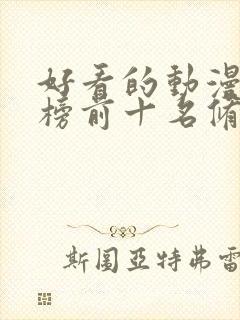 好看的動漫
榜前十名脩
斯圖亞特弗雷